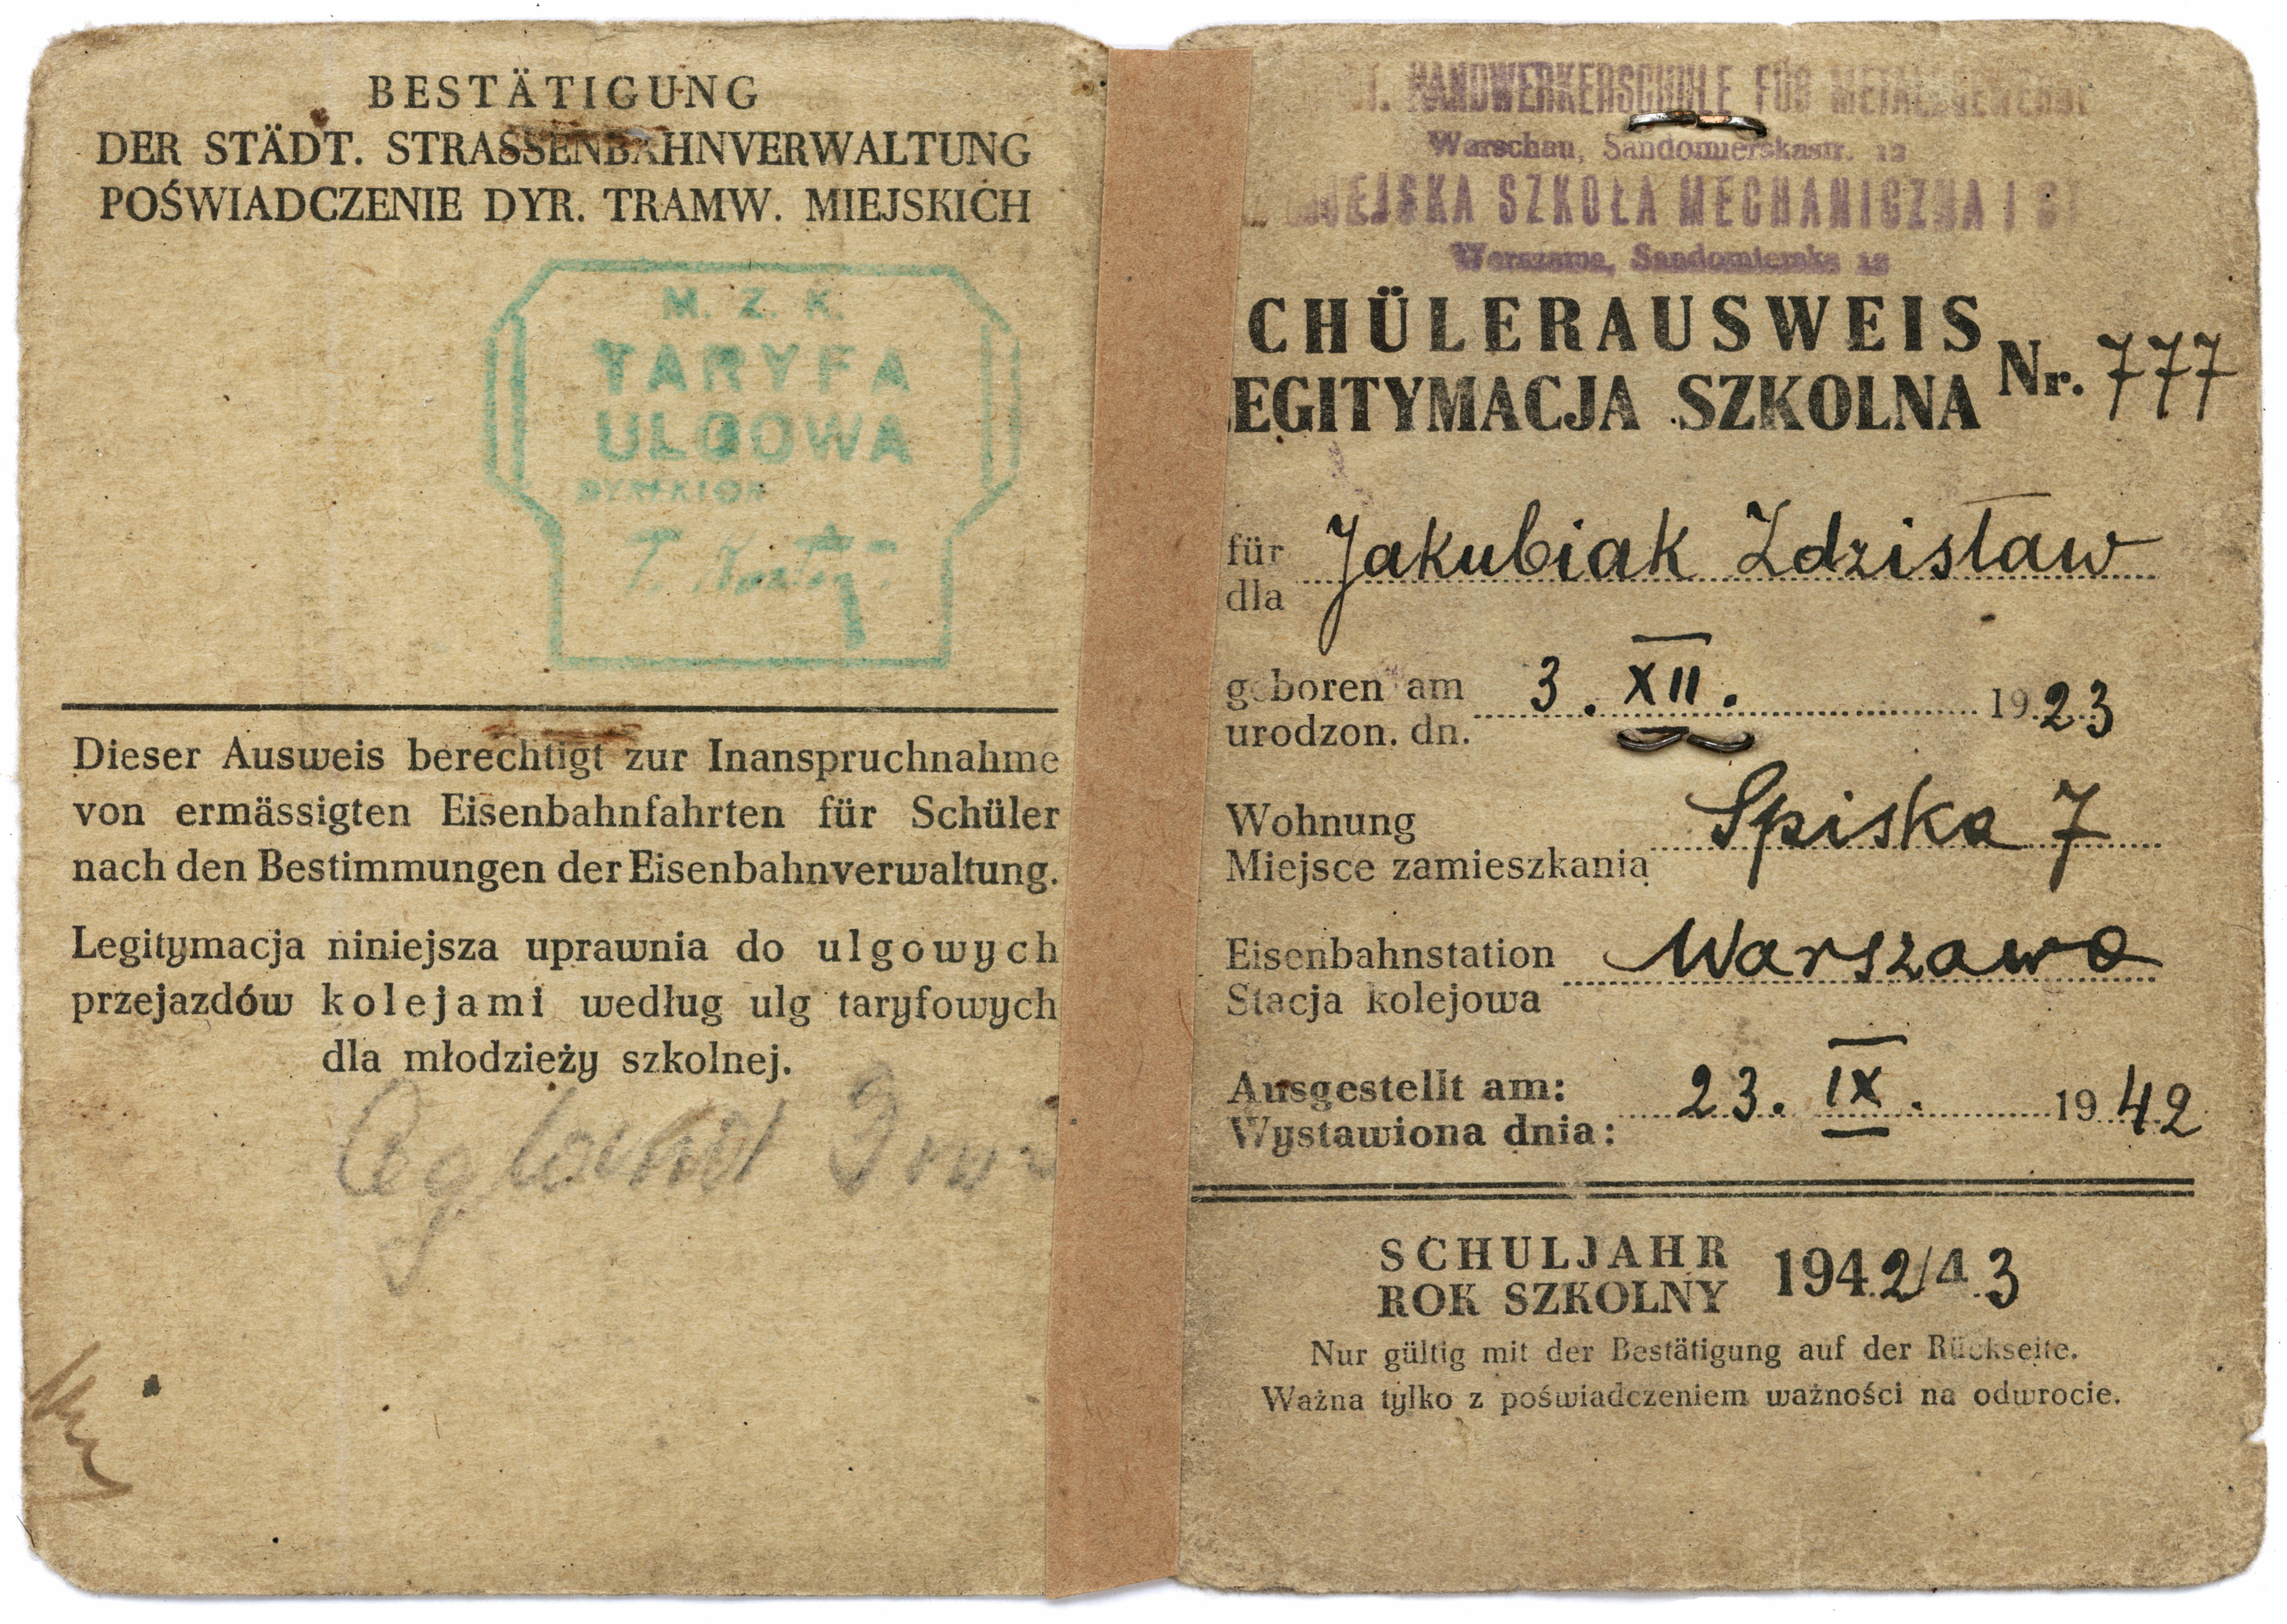 BESTÄTIGUNG
DER STÄDT. STRASSENBAHNVERWALTUNG
POŚWIADCZENIE DYR. TRAMW. MIEJSKICH
M. Z. K.
TARYFA
ULGOWA
DYREKTOR
Dieser Ausweis berechtigt zur Inanspruchnahme
von ermässigten Eisenbahnfahrten für Schüler
nach den Bestimmungen der Eisenbahnverwaltung.
Legitymacja niniejsza uprawnia do ulgowych
przejazdów kolejami według ulg taryfowych
dla młodzieży szkolnej.
HANDWERKERSCHULE FÜR METALLGEWERBE
Warschau, Sandomierskastr. 12
MIEJSKA SZKOŁA MECHANICZNA I
Warszawa, Sandomierska 12
CHÜLERAUSWEIS
EGITYMACJA SZKOLNA Nr. 777
für Jakubiak Zdzisław
dla
geboren am 3. XII. 1923
urodzon. dn.
Wohnung Spiska 7
Miejsce zamieszkania
Eisenbahnstation Warszawa
Stacja kolejowa
Ausgestellt am: 23. IX. 1942
Wystawiona dnia:
SCHULJAHR 1942/43
ROK SZKOLNY
Nur gültig mit der Bestätigung auf der Rückseite.
Ważna tylko z poświadczeniem ważności na odwrocie.